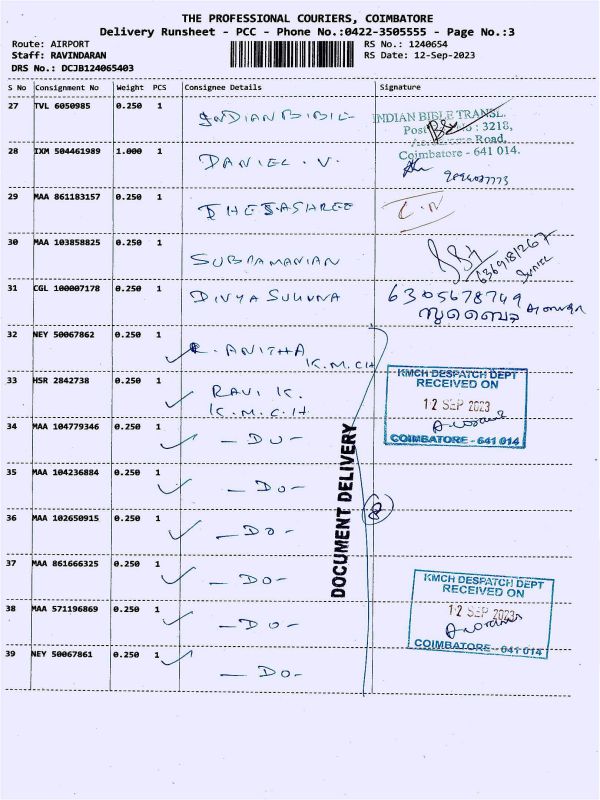 THE PROFESSIONAL COURIERS, COIMBATORE
Delivery Runsheet - PCC - Phone No.:0422-3505555 - Page No.:3
Route: AIRPORT RS No.: 1240654
Staff: RAVINDARAN RS Date: 12-Sep-2023
DRS No.: DCJB124065403
S No Consignment No Weight PCS Consignee Details Signature
27 TVL 6050985 0.250 1 INDIAN BIBIL INDIAN BIBLE TRANSL.
Post : 3218,
Road,
Coimbatore - 641 014.
28 IXM 504461989 1.000 1 DANIEL. V.
29 MAA 861183157 0.250 1 THEJASHREE
30 MAA 103858825 0.250 1 SUBRAMANIAN 6369181267
31 CGL 100007178 0.250 1 DIVYA SUGUNA 6305678749
32 NEY 50067862 0.250 1 ANITHA
K.M.CH
33 HSR 2842738 0.250 1 RAVI K.
K.M.C.H
KMCH DESPATCH DEPT
RECEIVED ON
12 SEP 2023
COIMBATORE - 641 014
34 MAA 104779346 0.250 1 - DO -
35 MAA 104236884 0.250 1 - DO -
36 MAA 102650915 0.250 1 - DO -
37 MAA 861666325 0.250 1 - DO -
38 MAA 571196869 0.250 1 - DO -
39 NEY 50067861 0.250 1 - DO -
DOCUMENT DELIVERY
KMCH DESPATCH DEPT
RECEIVED ON
12 SEP 2023
COIMBATORE - 641 014